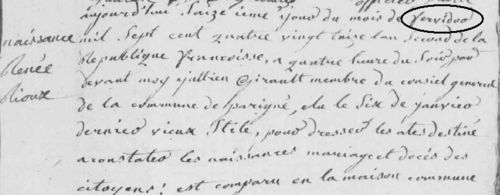 aujourd'hui Saize ieme jour du mois de fervidor
naissance mil Sept cent quatre vingt traize lan Second de la
Renée République francoisse, a quatre heure du Soir par
Rioux devant moy jullien Girault membre du consiel general
de la commune de parigné, elu le Six de janvier
dernier vieux Stile, pour dresser les ates destiné
a constater les naissances mariage et docés des
citoyens; est comparu en la maison commune